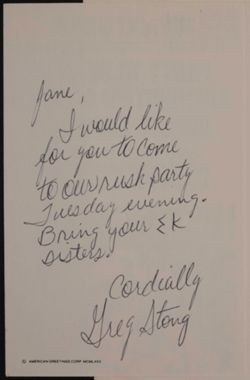 Jane,
I would like
for you to come
to our rush party
Tuesday evening.
Bring your ΣK
sisters.
Cordially
Greg Stong
© AMERICAN GREETINGS CORP. MCMLXXX